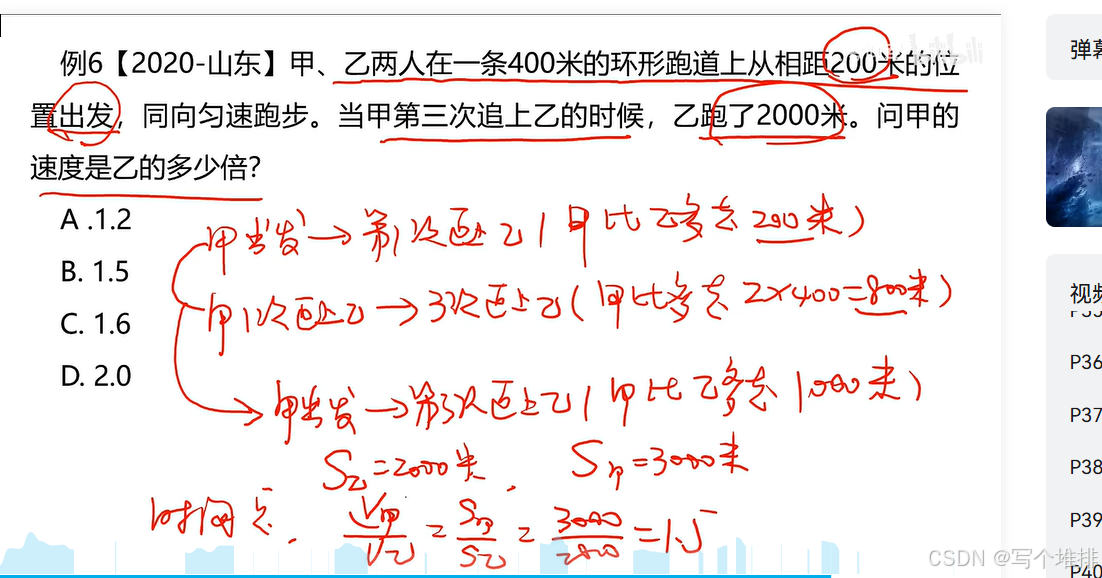 例6【2020-山东】甲、乙两人在一条400米的环形跑道上从相距200米的位
置出发，同向匀速跑步。当甲第三次追上乙的时候，乙跑了2000米。问甲的
速度是乙的多少倍？
A .1.2
B. 1.5
C. 1.6
D. 2.0
甲出发→第1次追上乙(甲比乙多走200米)
甲1次追上乙→3次追上乙(甲比多走2×400=800米)
甲出发→第3次追上乙(甲比乙多走1000米)
S乙=2000米. S甲=3000米
时间
V甲/V乙=S甲/S乙=3000/2000=1.5
bilibili
弹幕
视频
P35
P36
P37
P38
P39
P40
CSDN @写个堆排